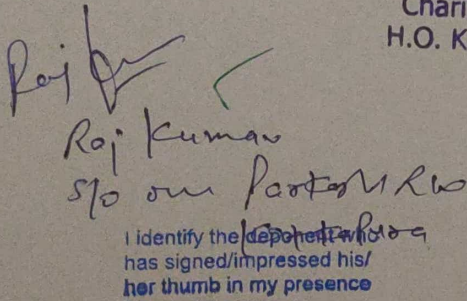 Chari
H.O. K
Raj Kumar
Raj Kumar
S/o om Parkash R/o
Kotkapura
I identify the deponent who
has signed/impressed his/
her thumb in my presence